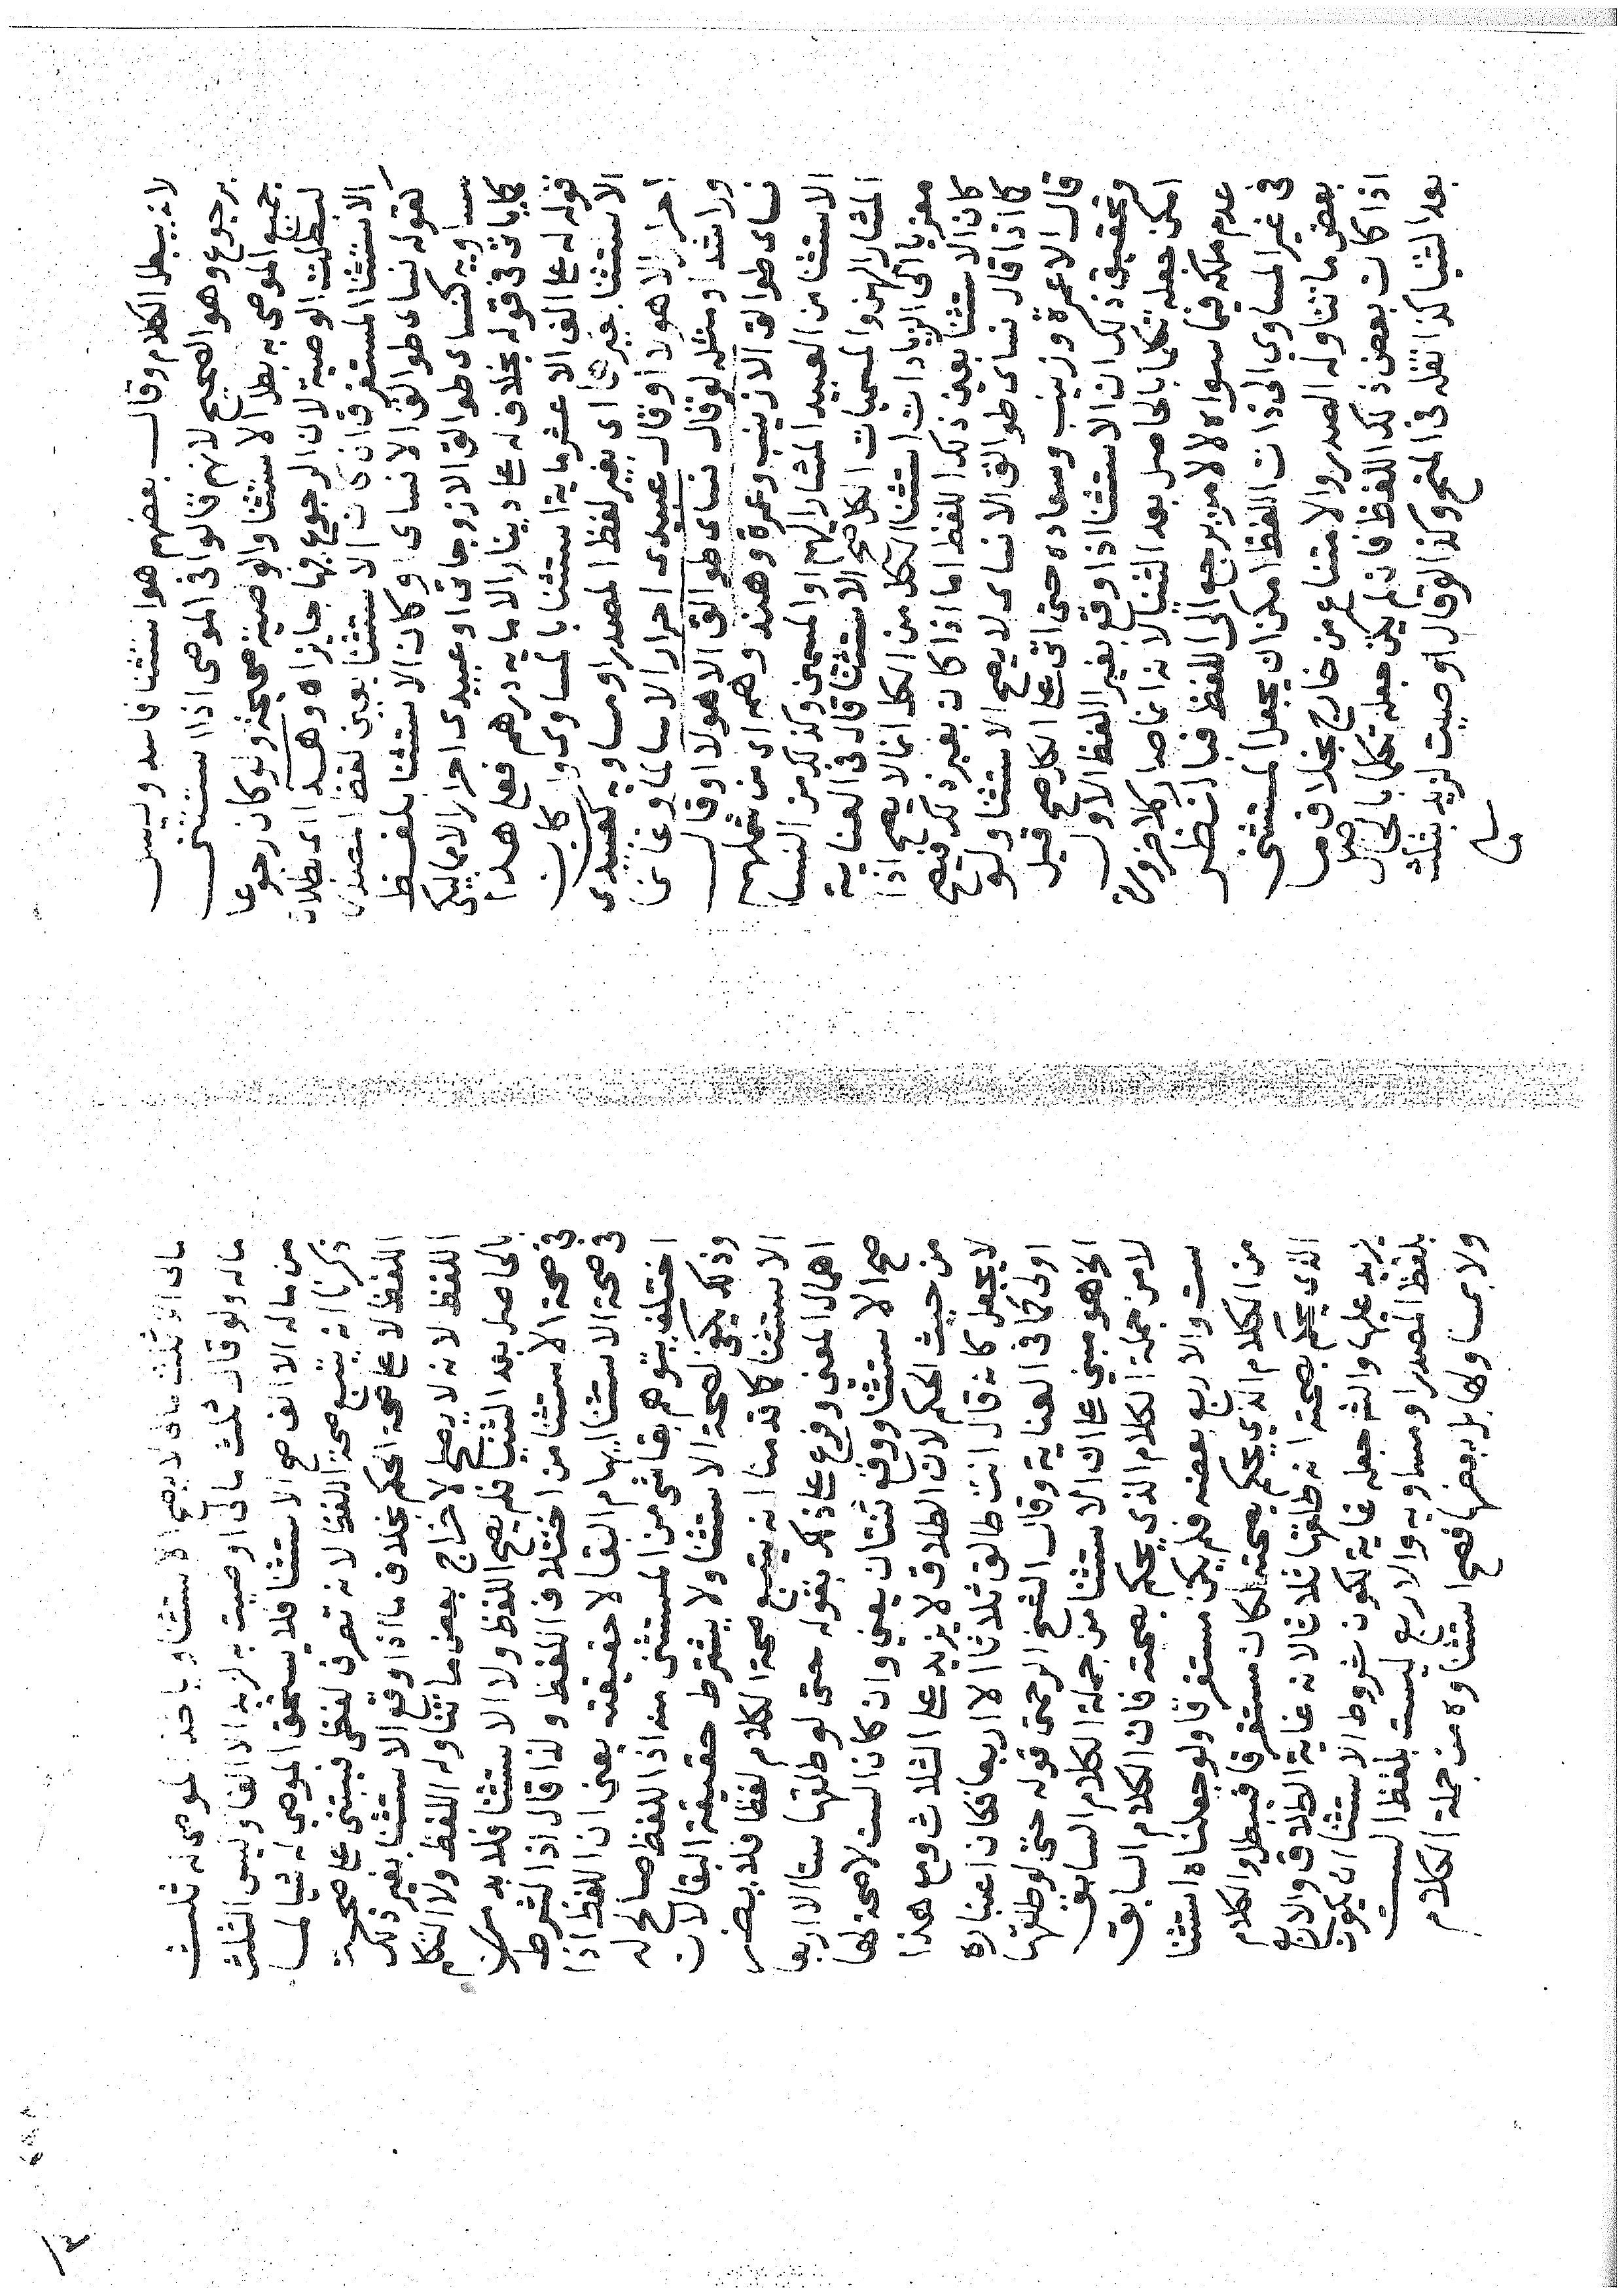 لانه يبطل الكلام وقال بعضهم هو استثنا فاسد وليس
برجوع وهو الصحيح لانهم قالوا فى الموصى اذا استثنى
جميع الموصى به بطل الاستثنا والوصية صحيحة ولو كان رجوعا
لبطلت الوصية لان الرجوع فيها جايز اه وهـذا اى بطلان
الاستثنا المستغرق ان كان الاستثنا بعين لفظ الصدر
كقوله نساى طوالق الا نساى او كان الاستثنا بلفـظ
يساويه كنساى طوالق الا زوجاتى او عبيدى احرار الا مماليكى
كما ياتى فى قوله بخلاف له على دينار الا ماية درهم فعلى هـذا
قوله له على الف الا عشر ماية استثنا بالمساوى وان كان
الاستثنا بغيرهما اى بغير لفظ الصدر او مساويه كعبيدى
احرار الا هولا او قال عبيدى احرار الا سالما وغانما
وراشدا ومثله لو قال نساى طوالق الا هولا او قال
نساى طوالق الا زينب وعمرة وهند وهم اى من شملهم
الاستثنا من العبيد المشار اليهم او المسمين وكذلك من النسا
المشار اليهن والمسميات الكل صح الاستثنا قال فى العناية
معزيا الى الزيادات استثنا الكل من الكل انما لا يصح اذا
كان الاستثنا بعين ذلك اللفظ اما اذا كان بغير ذلك فيصح
كما اذا قال نساى طوالق الا نساى لا يصح الاستثنا ولو
قال الا عمرة وزينب وسعاده حتى اتى على الكل صح قيل
وتحقيق ذلك ان الاستثنا اذا وقع بغير اللفظ الاول
امكن جعله تكلما بالحاصل بعد الثنيا لانه انما صار كلا ضرورة
عدم ملكه فيما سواه لا لامر يرجع الى اللفظ فبالنظر
فى غير المساوى الى ذات اللفظ امكن ان يجعل المستثنى
بعض ما تناوله الصدر والامتناع من خارج بخلاف ما
اذا كان بعض ذلك اللفظ فانه لم يكن جعله تكلما بالحاصل
بعد الثنيا كذا نقله فى المنح وكذا لو قال اوصيت لزيد بثلث
مالى
مالى الا ثلث مالى لا يصح الاستثنا وياخذ الموصى له ثلث
ماله ولو قال ثلث مالى اوصيت به لزيد الا الفا وليس الثلث
من ماله الا الف صح الاستثنا فلا يستحق الموصى له شيا لما
ذكرنا انه يتبع صحة اللفظ لانه تصرف لفظى فيبتنى على صحة
اللفظ لا على صحة الحكم بخلاف ما اذا وقع الاستثنا بغير ذلك
اللفظ لانه لا يصلح لاخراج بعض ما تناوله اللفظ ولا التكلم
بالحاصل بعد الثنيا فلم يصح اللفظ ولا الاستثنا فلا بد
فى صحة الاستثنا من اختلاف اللفظ ولذا قال اذ الشرط
فى صحة الاستثنا ايهام البقا لا حقيقته يعنى ان اللفظ اذا
اختلف يتوهم بقا شى من المستثنى منه اذ اللفظ صالح له
وذلك يكفى لصحة الاستثنا ولا يشترط حقيقة البقا لان
الاستثنا كما قدمنا انه يتبع صحة الكلام لفظا فلا يضر
اهمال المعنى وفرع على ذلك بقوله حتى لو طلقها ستا الا اربعا
صح الاستثنا ووقع ثنتان يعنى وان كان الست لا صحة لها
من حيث الحكم لان الطلاق لا يزيد على الثلاث ومع هذا
لا يجعل كانه قال انت طالق ثلاثا الا اربعا فكان اعتباره
اولى كما فى العناية وقال الشيخ الرحمتى قوله حتى لو طلقها
الخ هو مبنى على ان الاستثنا من جملة الكلام السابق
لا من جملة الكلام الذي يحكم بصحته فان الكلام السابق
ست والاربع بعضه فلم يكن مستغرقا ولو جعلناه استثنا
من الكلام الذي يحكم بصحته لكان مستغرقا فبطل والكلام
الذي يحكم بصحته انه طلقها ثلاثا لانه غاية الطلاق والاربع
يزيد عليها والشه جعله غاية لكون شروط الاستثنا ان يكون
بلفظ المصدر او مساويه والاربع ليست بلفظ الست
ولا بمساو لها بل بعضها فصح استثناوه من جملة الكلام